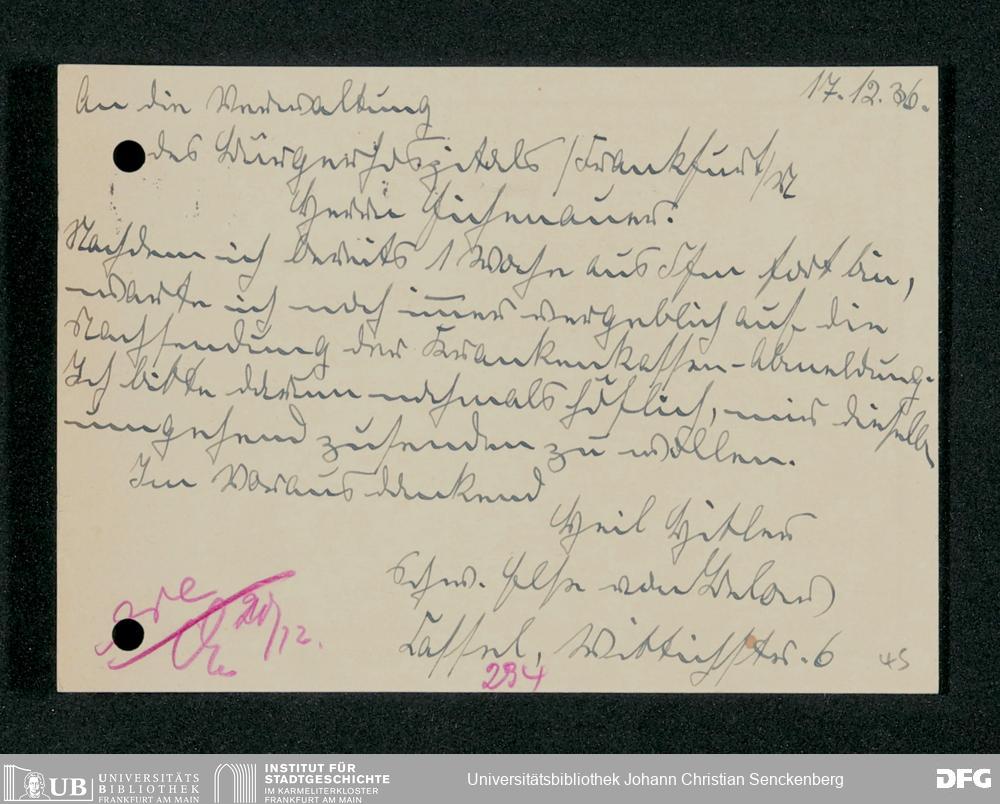 17.12.36.
An die Verwaltung
des Bürgerhospitals / Frankfurt/M
Herrn Eichenauer.
Nachdem ich bereits 1 Woche aus Ffm fort bin,
warte ich noch im̅er vergeblich auf die
Nachsendung der Krankenkassen-Abmeldung.
Ich bitte darum nochmals höflich, mir dieselbe
umgehend zusenden zu wollen.
Im Voraus dankend
Heil Hitler
Schw. Else von Below
Cassel, Wittichstr. 6
20/12.
234
45
UB UNIVERSITÄTS
BIBLIOTHEK
FRANKFURT AM MAIN
INSTITUT FÜR
STADTGESCHICHTE
IM KARMELITERKLOSTER
FRANKFURT AM MAIN
Universitätsbibliothek Johann Christian Senckenberg
DFG